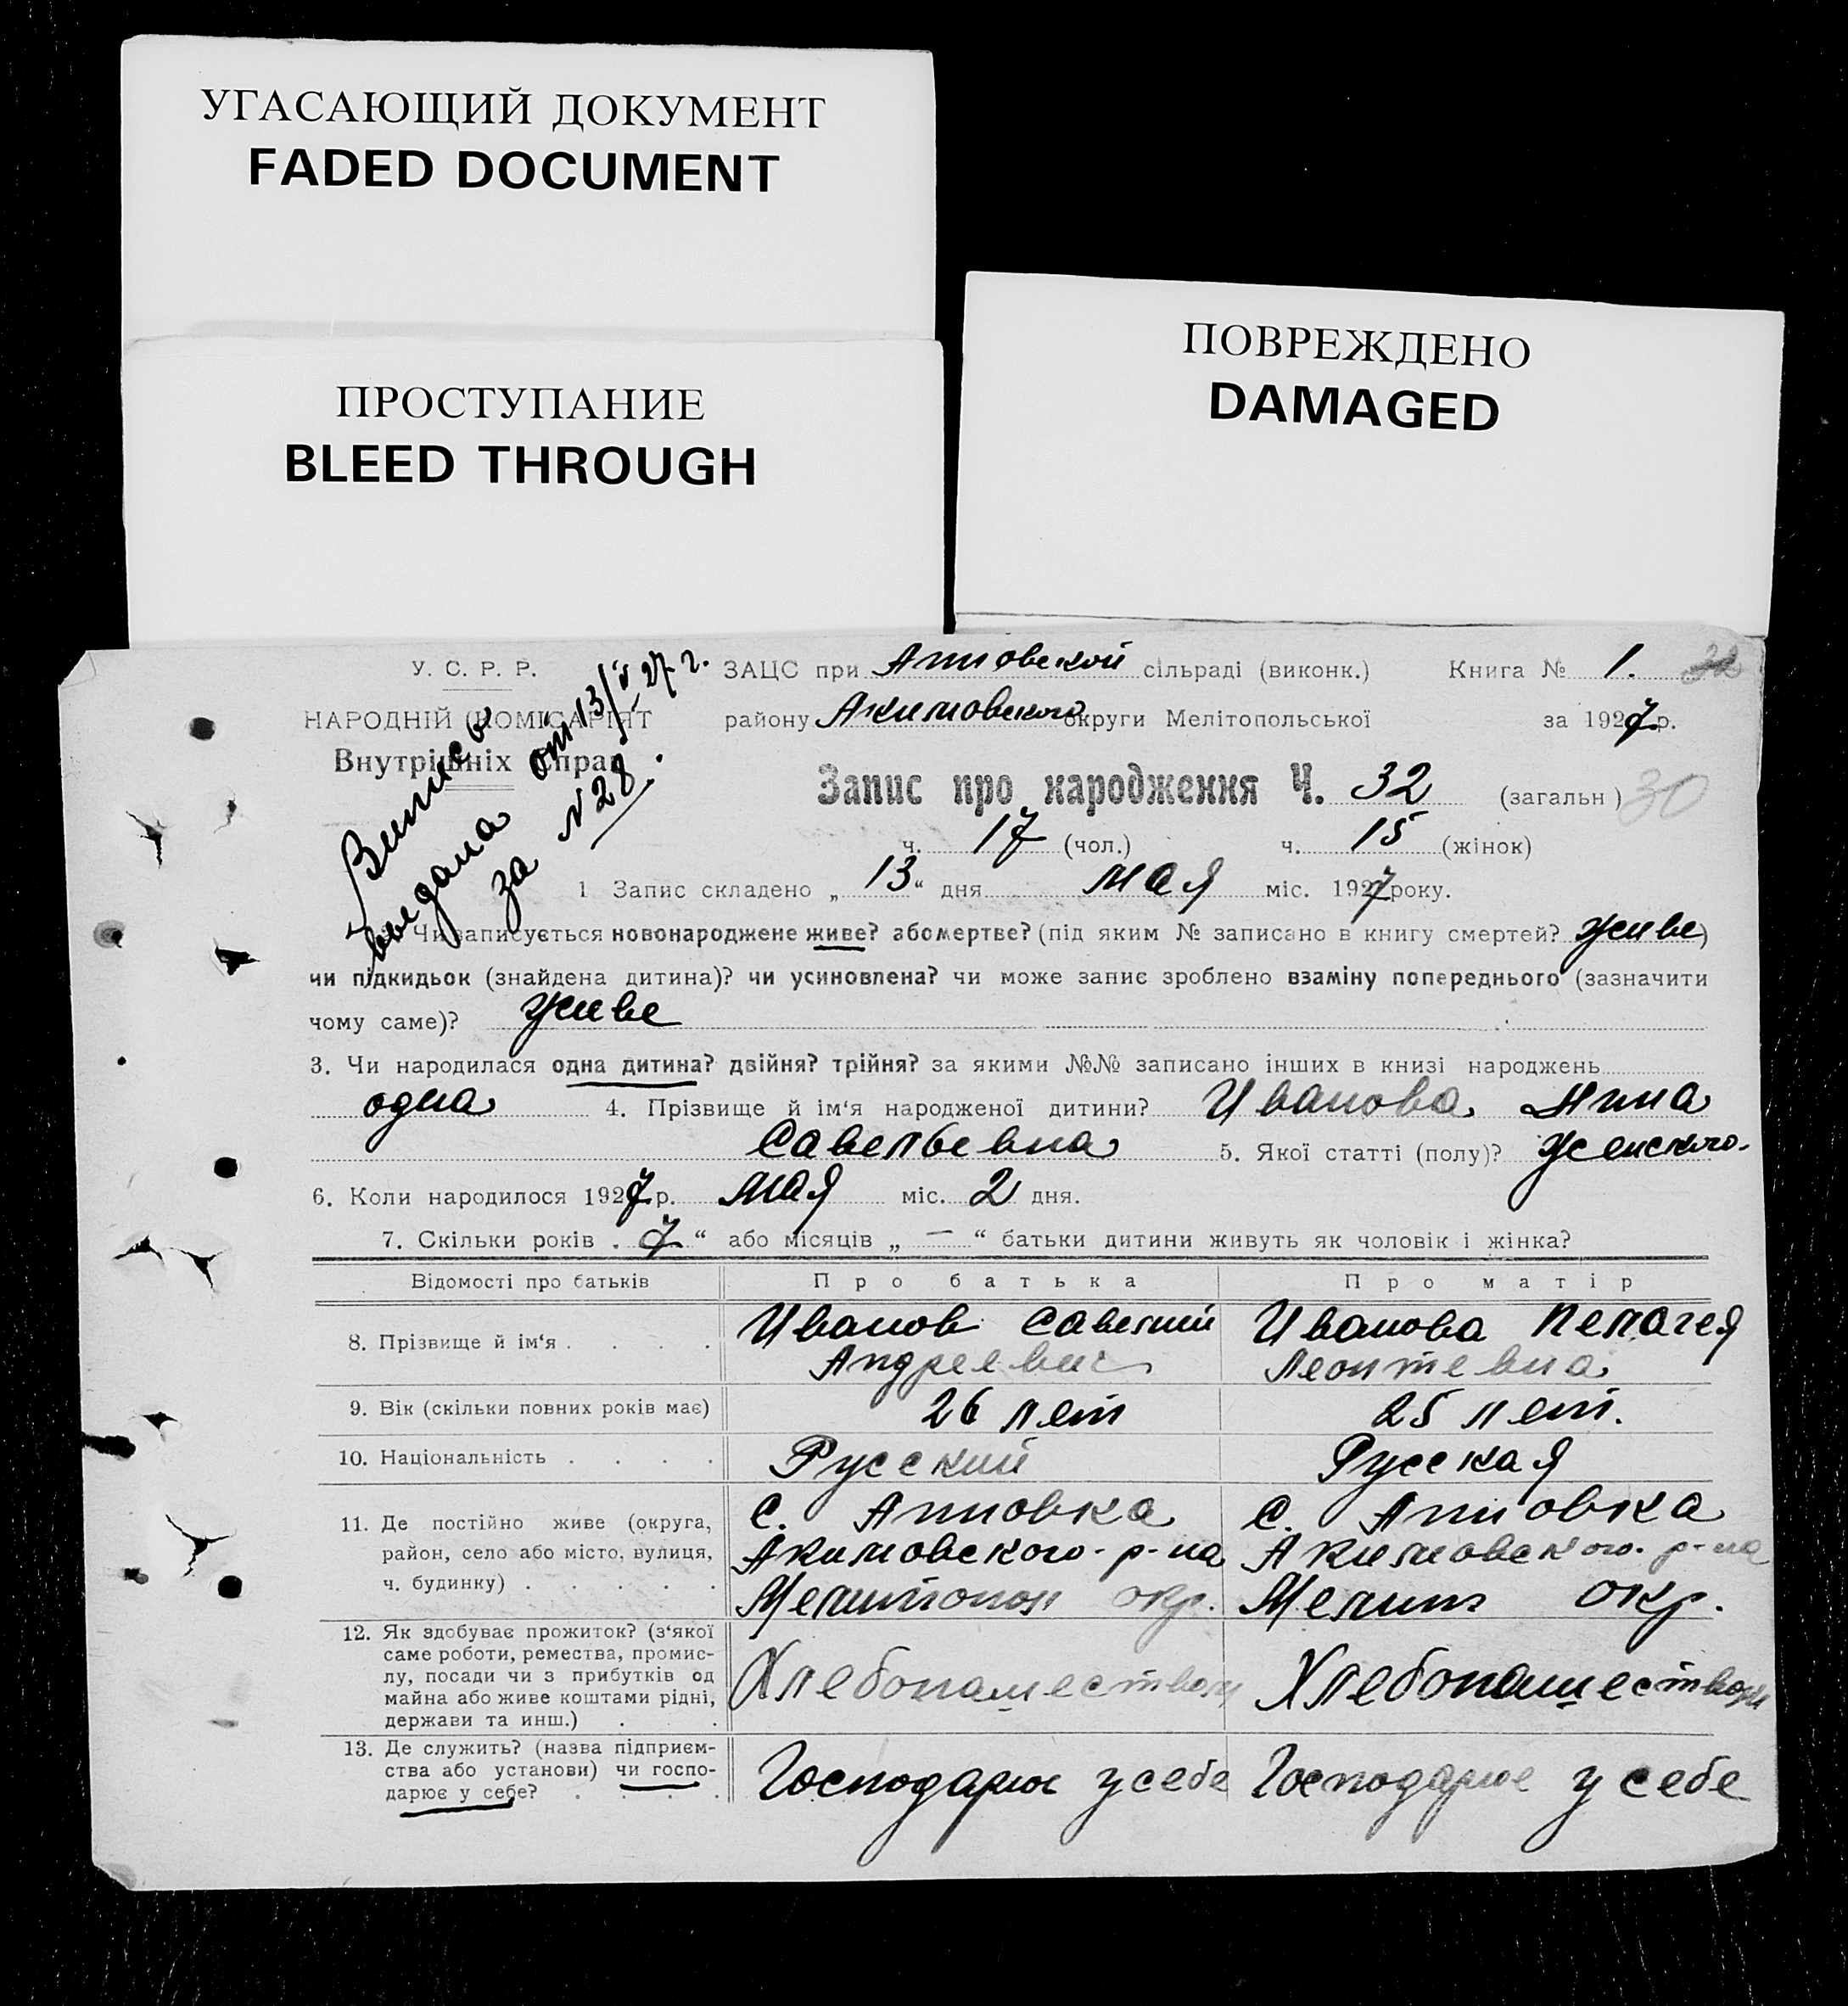 УГАСАЮЩИЙ ДОКУМЕНТ
FADED DOCUMENT
ПРОСТУПАНИЕ
BLEED THROUGH
ПОВРЕЖДЕНО
DAMAGED
У. С. Р. Р.
НАРОДНІЙ КОМІСАРІЯТ
Внутрішніх Справ
Выпись
выдана от 13/V 27 г.
за №28.
ЗАЦС при Анновской сільраді (виконк.) Книга № 1. 32
району Акимовского округи Мелітопольської за 1927 р.
Запис про народження Ч. 32 (загальн) 30
ч. 17 (чол.) ч. 15 (жінок)
1 Запис складено „ 13 “ дня мая міс. 1927 року.
Чи записується новонароджене живе? або мертве? (під яким № записано в книгу смертей? живе)
чи підкидьок (знайдена дитина)? чи усиновлена? чи може запис зроблено взаміну попереднього (зазначити
чому саме)? живе
3. Чи народилася одна дитина? двійня? трійня? за якими №№ записано інших в книзі народжень
одна 4. Прізвище й ім'я народженої дитини? Иванова Нина
Савельевна 5. Якої статті (полу)? женского.
6. Коли народилося 1927 р. мая міс. 2 дня.
7. Скільки років „ 7 “ або місяців „ — “ батьки дитини живуть як чоловік і жінка?
Відомості про батьків Про батька Про матір
8. Прізвище й ім'я . . . . Иванов Савелий Иванова Пелагея
Андреевич Леонтевна
9. Вік (скільки повних років має) 26 лет 25 лет.
10. Національність . . . . Русский Русская
11. Де постійно живе (округа, С. Анновка С. Анновка
район, село або місто, вулиця, Акимовского р-на Акимовского р-на
ч. будинку) . . . . . Мелитопол окр. Мелит окр.
12. Як здобуває прожиток? (з'якої
саме роботи, ремества, промис-
лу, посади чи з прибутків од Хлебопашеством Хлебопашеством
майна або живе коштами рідні,
держави та инш.) . .
13. Де служить? (назва підприєм-
ства або установи) чи госпо- Господарює у себе Господарює у себе
дарює у себе? . . . .